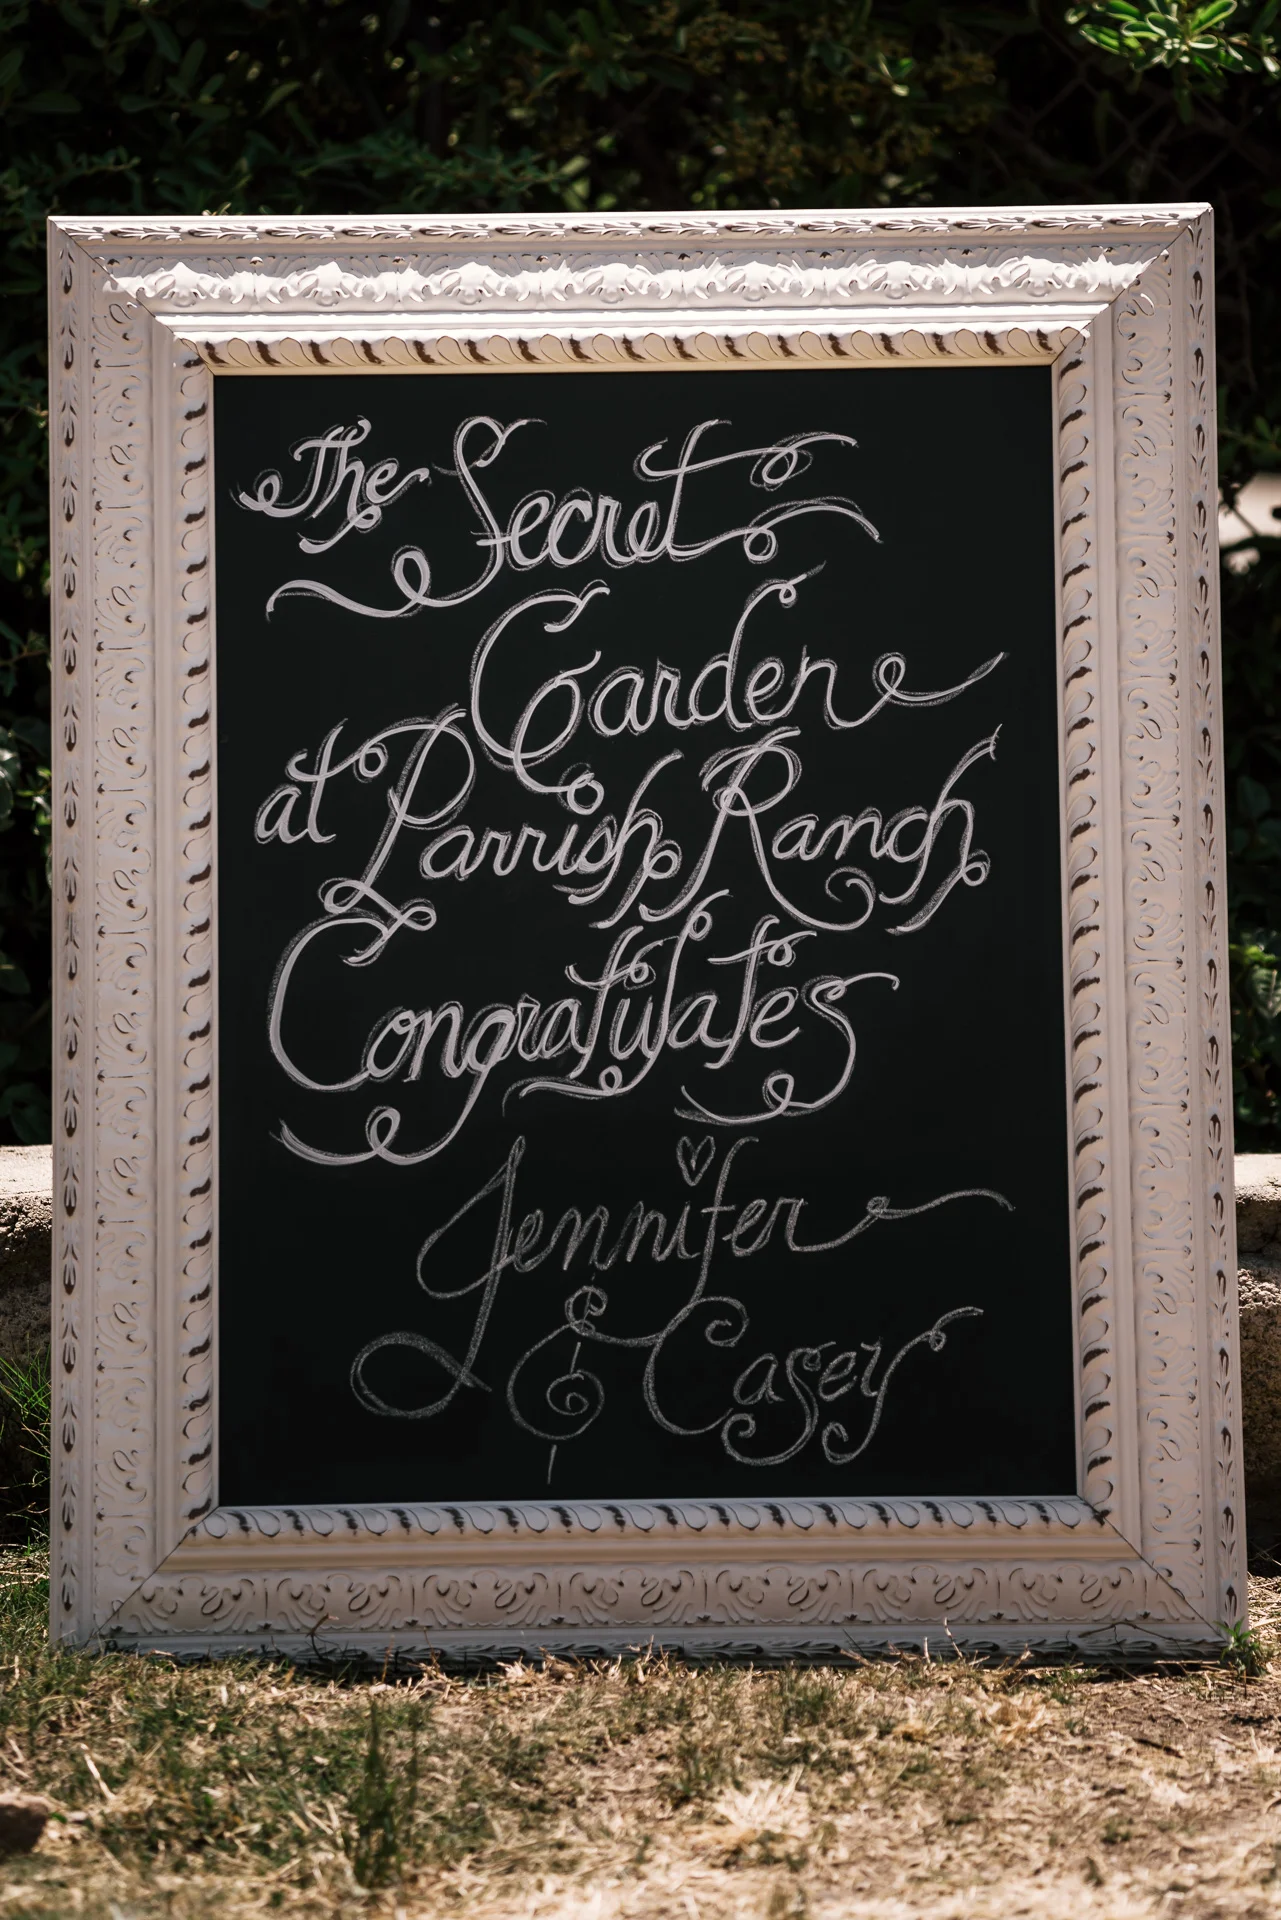 The Secret
Garden
at Parrish Ranch
Congratulates
Jennifer
& Casey